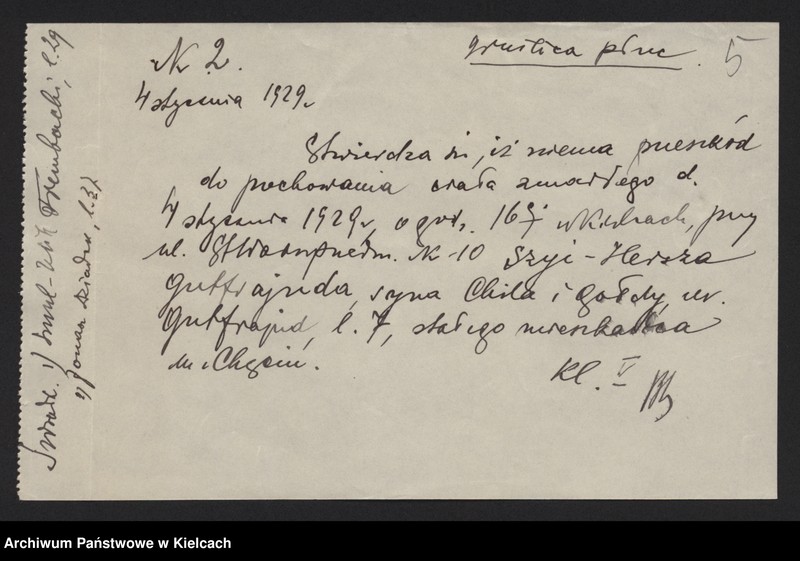 № 2.
gruźlica płuc
5
4 stycznia 1929 r.
Stwierdza się, iż niema przeszkód
do pochowania ciała zmarłego d.
4 stycznia 1929 r. o godz. 16ej w Kielcach, przy
ul. № 10 Szyi-Hersza
Gutfrajnda, syna Chila i Gołdy, ur.
Gutfrajnd, l. 7, stałego mieszkańca
m. Chęcin.
Kl. V
Świad. 1) Frembacki, l. 29
2)
Archiwum Państwowe w Kielcach